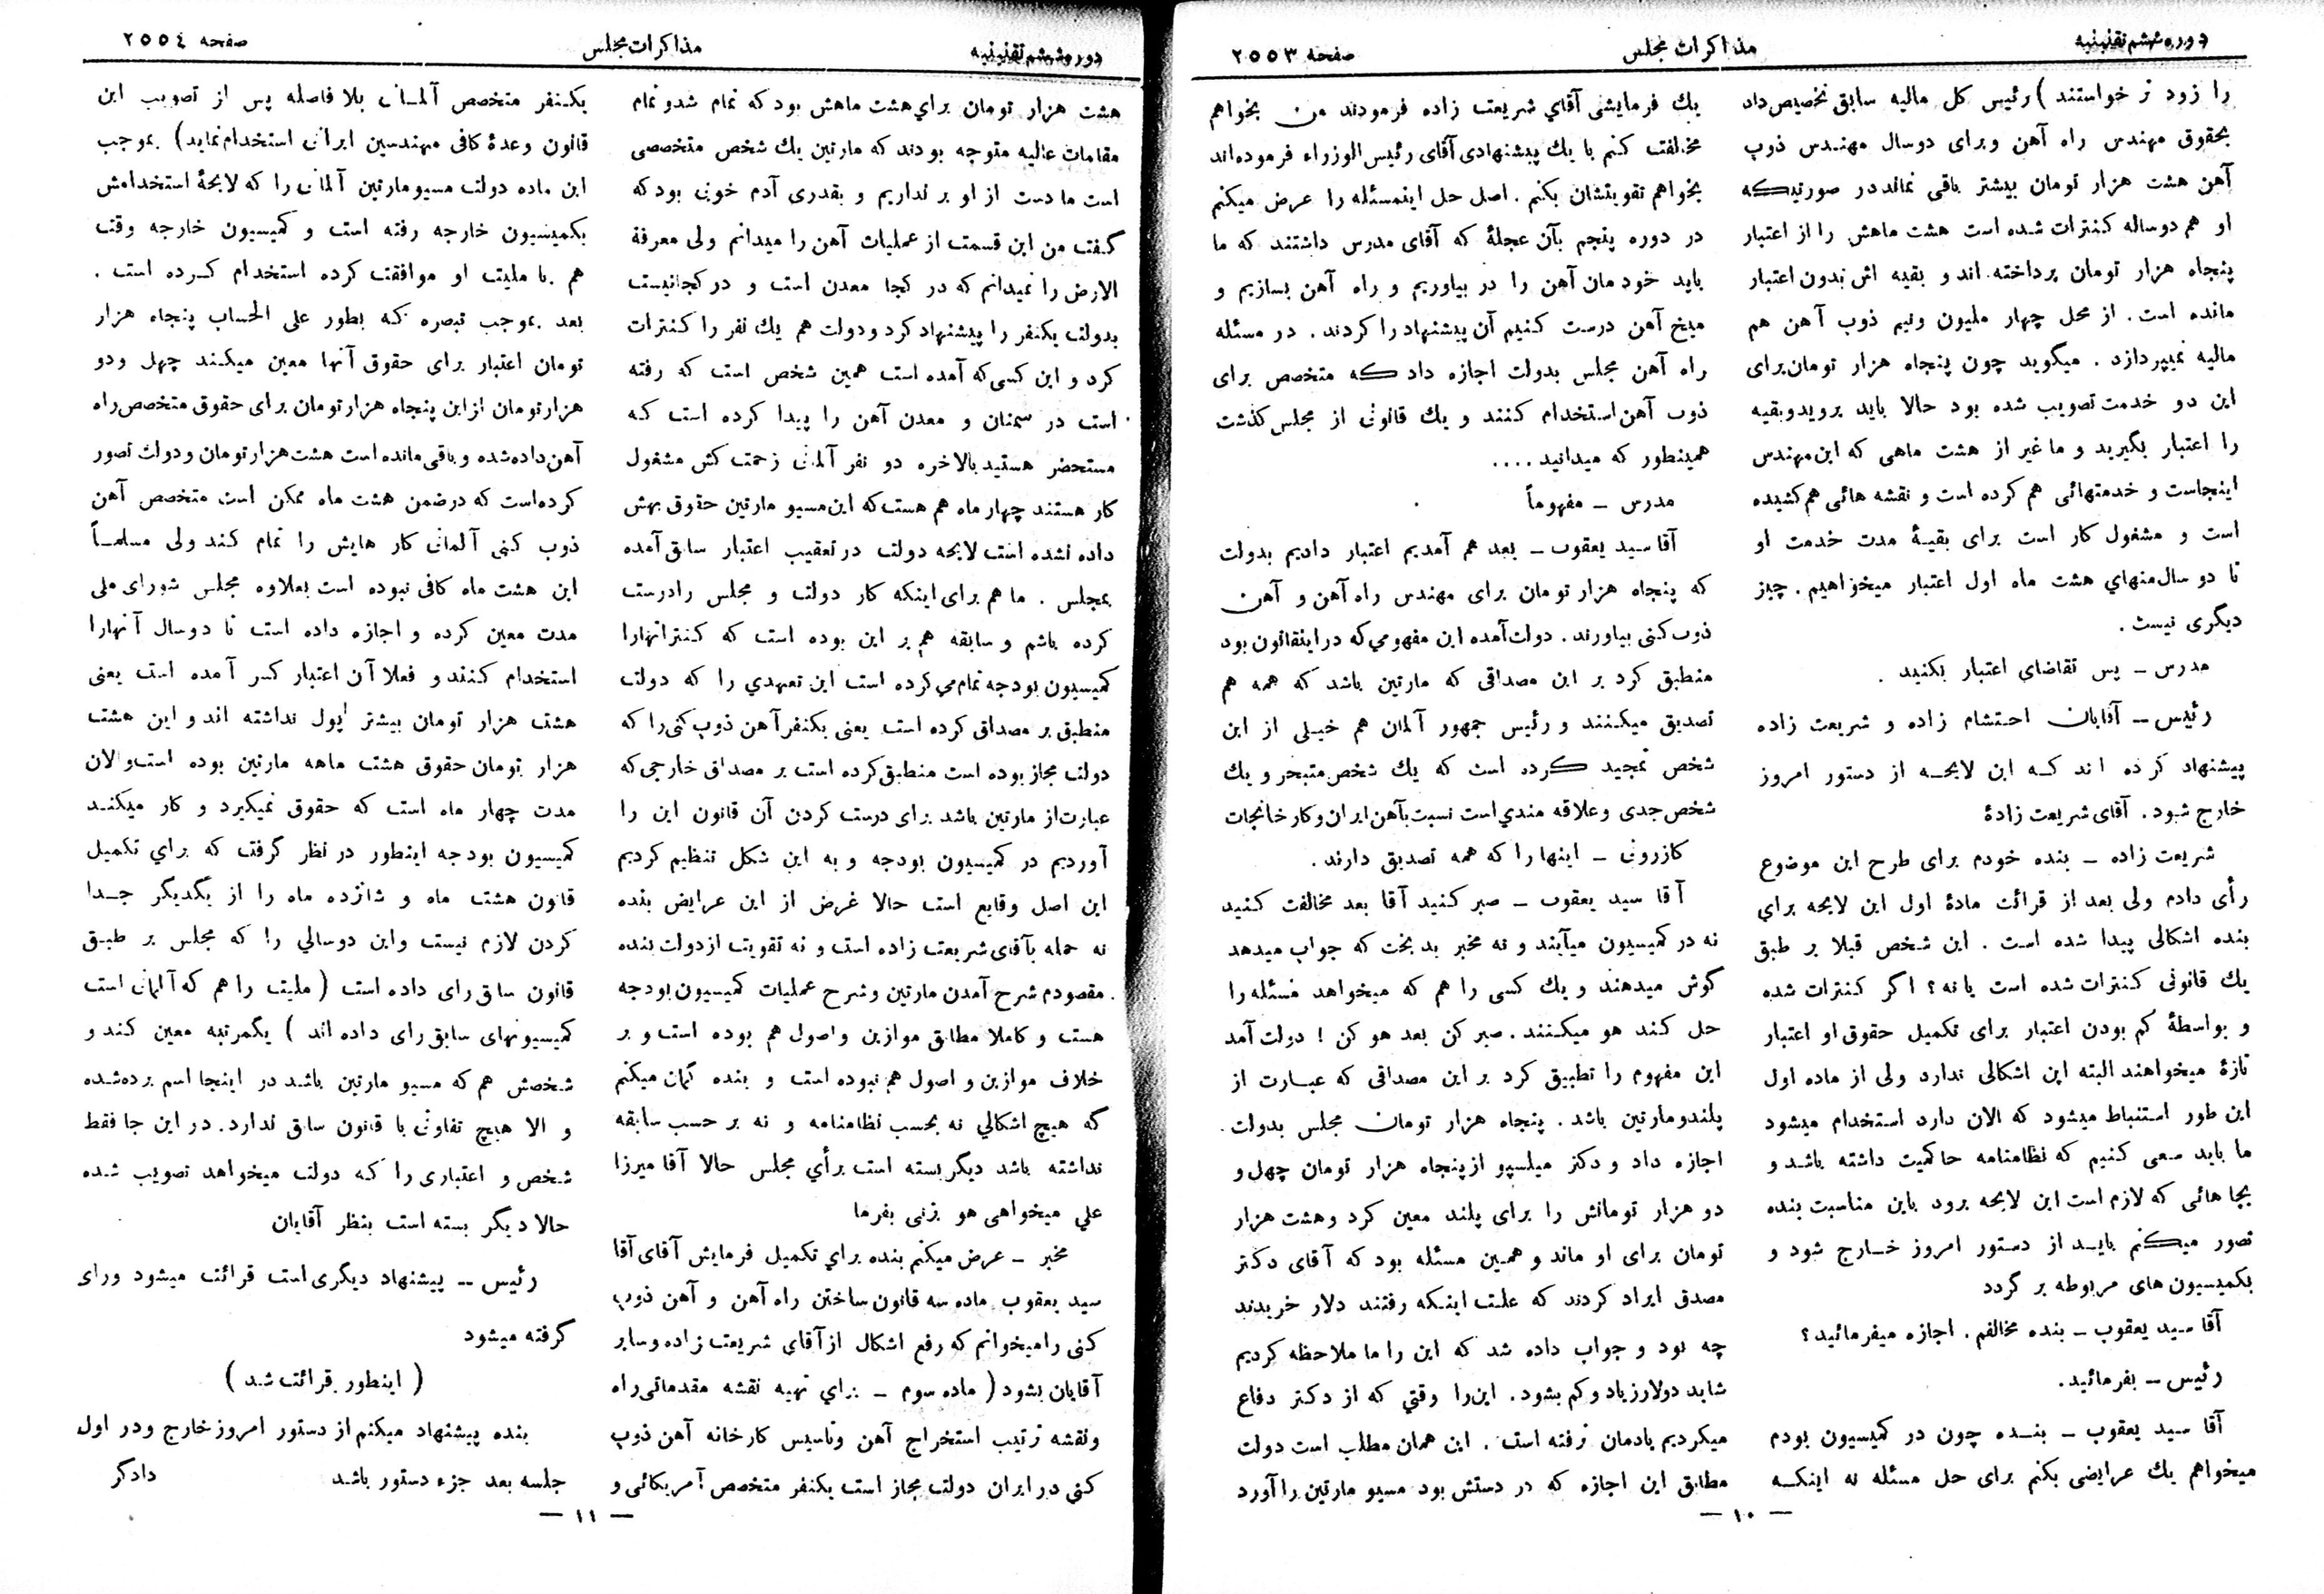 دوره ششم تقنینیه
مذاکرات مجلس
صفحه ۲۵۵۳
را زود تر خواستند ) رئیس کل مالیه سابق تخصیص داد
بحقوق مهندس راه آهن وبرای دوسال مهندس ذوب
آهن هشت هزار تومان بیشتر باقی نماند در صورتیکه
او هم دوساله کنترات شده است هشت ماهش را از اعتبار
پنجاه هزار تومان پرداخته اند و بقیه اش بدون اعتبار
مانده است . از محل چهار ملیون ونیم ذوب آهن هم
مالیه نمیپردازد . میگوید چون پنجاه هزار تومان برای
این دو خدمت تصویب شده بود حالا باید بروید وبقیه
را اعتبار بگیرید و ما غیر از هشت ماهی که این مهندس
اینجاست و خدمتهائی هم کرده است و نقشه هائی هم کشیده
است و مشغول کار است برای بقیهٔ مدت خدمت او
تا دو سال منهای هشت ماه اول اعتبار میخواهیم . چیز
دیگری نیست .
مدرس ـ پس تقاضای اعتبار بکنید .
رئیس ـ آقایان احتشام زاده و شریعت زاده
پیشنهاد کرده اند که این لایحه از دستور امروز
خارج شود . آقای شریعت زادهٔ
شریعت زاده ـ بنده خودم برای طرح این موضوع
رأی دادم ولی بعد از قرائت مادهٔ اول این لایحه براي
بنده اشکالی پیدا شده است . این شخص قبلا بر طبق
یك قانونی کنترات شده است یا نه ؟ اگر کنترات شده
و بواسطهٔ کم بودن اعتبار برای تکمیل حقوق او اعتبار
تازهٔ میخواهند البته این اشکالی ندارد ولی از ماده اول
این طور استنباط میشود که الان دارد استخدام میشود
ما باید سعی کنیم که نظامنامه حاکمیت داشته باشد و
بجا هائی که لازم است این لایحه برود باین مناسبت بنده
تصور میکنم باید از دستور امروز خارج شود و
بکمیسیون های مربوطه بر گردد
آقا سید یعقوب ـ بنده مخالفم . اجازه میفرمائید ؟
رئیس ـ بفرمائید .
آقا سید یعقوب ـ بنده چون در کمیسیون بودم
میخواهم یك عرایضی بکنم برای حل مسئله نه اینکه
یك فرمایشی آقاي شریعت زاده فرمودند من بخواهم
مخالفت کنم با یك پیشنهادی آقای رئیس الوزراء فرموده اند
بخواهم تقویتشان بکنم . اصل حل اینمسئله را عرض میکنم
در دوره پنجم بآن عجلهٔ که آقای مدرس داشتند که ما
باید خودمان آهن را در بیاوریم و راه آهن بسازیم و
میخ آهن درست کنیم آن پیشنهاد را کردند . در مسئله
راه آهن مجلس بدولت اجازه داد که متخصص برای
ذوب آهن استخدام کنند و یك قانونی از مجلس گذشت
همینطور که میدانید ....
مدرس ـ مفهوماً
آقا سید یعقوب ـ بعد هم آمدیم اعتبار دادیم بدولت
که پنجاه هزار تومان برای مهندس راه آهن و آهن
ذوب کنی بیاورند . دولت آمده این مفهومي که در اینقانون بود
منطبق کرد بر این مصداقی که مارتین باشد که همه هم
تصدیق میکنند و رئیس جمهور آلمان هم خیلی از این
شخص تمجید کرده است که یك شخص متبحر و یك
شخص جدی وعلاقه مندي است نسبت بآهن ایران و کارخانجات
کازرونی ـ اینها را که همه تصدیق دارند .
آقا سید یعقوب ـ صبر کنید آقا بعد مخالفت کنید
نه در کمیسیون میآیند و نه مخبر بدبخت که جواب میدهد
گوش میدهند و یك کسی را هم که میخواهد مسئله را
حل کند هو میکنند . صبر کن بعد هو کن ! دولت آمد
این مفهوم را تطبیق کرد بر این مصداقی که عبارت از
پلندو مارتین باشد . پنجاه هزار تومان مجلس بدولت
اجازه داد و دکتر میلسپو از پنجاه هزار تومان چهل و
دو هزار تومانش را برای پلند معین کرد وهشت هزار
تومان برای او ماند و همین مسئله بود که آقای دکتر
مصدق ایراد کردند که علت اینکه رفتند دلار خریدند
چه بود و جواب داده شد که این را ما ملاحظه کردیم
شاید دولار زیاد وکم بشود . این را وقتي که از دکتر دفاع
میکردیم یادمان نرفته است . این همان مطلب است دولت
مطابق این اجازه که در دستش بود مسیو مارتین را آورد
— ۱۰ —
دوره ششم تقنینیه
مذاکرات مجلس
صفحه ۲۵۵٤
هشت هزار تومان براي هشت ماهش بود که تمام شد و تمام
مقامات عالیه متوجه بودند که مارتین یك شخص متخصصی
است ما دست از او بر نداریم و بقدری آدم خوبی بود که
گفت من این قسمت از عملیات آهن را میدانم ولی معرفة
الارض را نمیدانم که در کجا معدن است و در کجانیست
بدولت یکنفر را پیشنهاد کرد و دولت هم یك نفر را کنترات
کرد و این کسی که آمده است همین شخص است که رفته
است در سمنان و معدن آهن را پیدا کرده است که
مستحضر هستید بالاخره دو نفر آلمانی زحمت کش مشغول
کار هستند چهار ماه هم هست که این مسیو مارتین حقوق بهش
داده نشده است لایحه دولت در تعقیب اعتبار سابق آمده
بمجلس . ما هم برای اینکه کار دولت و مجلس را درست
کرده باشم و سابقه هم بر این بوده است که کنتراتهارا
کمیسیون بودجه تمام مي کرده است این تعهدي را که دولت
منطبق بر مصداق کرده است یعنی یکنفر آهن ذوب کنی را که
دولت مجاز بوده است منطبق کرده است بر مصداق خارجی که
عبارت از مارتین باشد برای درست کردن آن قانون این را
آوردیم در کمیسیون بودجه و به این شکل تنظیم کردیم
این اصل وقایع است حالا غرض از این عرایض بنده
نه حمله بآقای شریعت زاده است و نه تقویت از دولت بنده
مقصودم شرح آمدن مارتین و شرح عملیات کمیسیون بودجه
هست و کاملا مطابق موازین و اصول هم بوده است و بر
خلاف موازین و اصول هم نبوده است و بنده گمان میکنم
که هیچ اشکالي نه بحسب نظامنامه و نه بر حسب سابقه
نداشته باشد دیگر بسته است برأي مجلس حالا آقا میرزا
علي میخواهی هو بزنی بفرما
مخبر ـ عرض میکنم بنده براي تکمیل فرمایش آقای آقا
سید یعقوب ماده سه قانون ساختن راه آهن و آهن ذوب
کنی را میخوانم که رفع اشکال از آقای شریعت زاده و سایر
آقایان بشود ( ماده سوم ـ براي تهیه نقشه مقدماتی راه
ونقشه ترتیب استخراج آهن وتاسیس کارخانه آهن ذوب
کنی در ایران دولت مجاز است یکنفر متخصص آمریکائی و
یکنفر متخصص آلمانی بلا فاصله پس از تصویب این
قانون وعدهٔ کافی مهندسین ایرانی استخدام نماید ) بموجب
این ماده دولت مسیو مارتین آلمانی را که لایحهٔ استخدامش
بکمیسیون خارجه رفته است و کمیسیون خارجه وقت
هم با ملیت او موافقت کرده استخدام کرده است .
بعد بموجب تبصره که بطور علی الحساب پنجاه هزار
تومان اعتبار برای حقوق آنها معین میکند چهل ودو
هزار تومان از این پنجاه هزار تومان برای حقوق متخصص راه
آهن داده شده و باقی مانده است هشت هزار تومان و دولت تصور
کرده است که در ضمن هشت ماه ممکن است متخصص آهن
ذوب کنی آلمانی کار هایش را تمام کند ولی مسلماً
این هشت ماه کافی نبوده است بعلاوه مجلس شورای ملی
مدت معین کرده و اجازه داده است تا دوسال آنهارا
استخدام کنند و فعلا آن اعتبار کسر آمده است یعنی
هشت هزار تومان بیشتر پول نداشته اند و این هشت
هزار تومان حقوق هشت ماهه مارتین بوده است والان
مدت چهار ماه است که حقوق نمیگیرد و کار میکند
کمیسیون بودجه اینطور در نظر گرفت که براي تکمیل
قانون هشت ماه و شانزده ماه را از یکدیگر جدا
کردن لازم نیست واین دوسالي را که مجلس بر طبق
قانون سابق رای داده است ( ملیت را هم که آلمانی است
کمیسیونهای سابق رای داده اند ) یکمرتبه معین کند و
شخصش هم که مسیو مارتین باشد در اینجا اسم برده شده
و الا هیچ تفاوتی با قانون سابق ندارد . در این جا فقط
شخص و اعتباری را که دولت میخواهد تصویب شده
حالا دیگر بسته است بنظر آقایان
رئیس ـ پیشنهاد دیگری است قرائت میشود ورای
گرفته میشود
( اینطور قرائت شد )
بنده پیشنهاد میکنم از دستور امروز خارج ودر اول
جلسه بعد جزء دستور باشد دادگر
— ۱۱ —